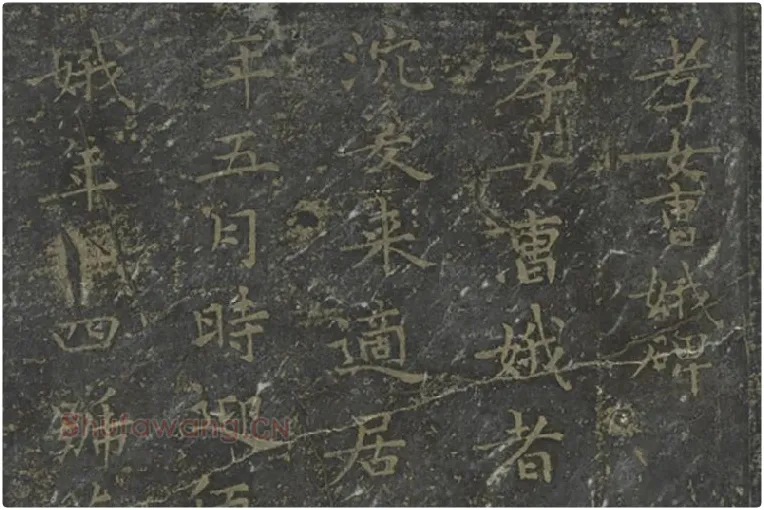 孝女曹娥碑
孝女曹娥者
沉爰来適居
年五月時迎伍
娥年十四號
Shufawang.CN